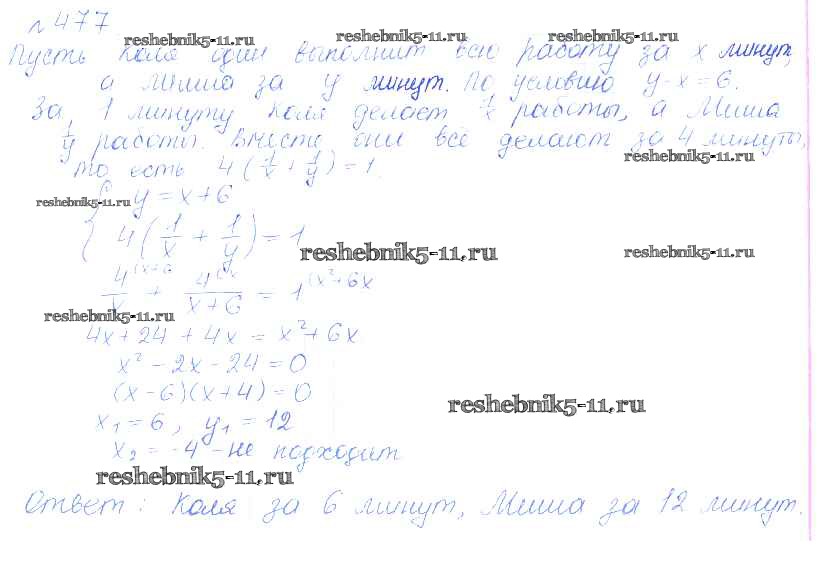 № 477
reshebnik5-11.ru reshebnik5-11.ru reshebnik5-11.ru
Пусть Коля один выполнит всю работу за x минут,
а Миша за y минут. По условию y-x=6.
За 1 минуту Коля делает 1/x работы, а Миша
1/y работы. Вместе они всё делают за 4 минуты,
reshebnik5-11.ru
то есть 4(1/x + 1/y) = 1.
reshebnik5-11.ru
{ y = x+6
4(1/x + 1/y) = 1
reshebnik5-11.ru reshebnik5-11.ru
4^(x+6/x + 4^(x/x+6 = 1^(x²+6x
reshebnik5-11.ru
4x+24+4x = x²+6x
x² - 2x - 24 = 0
(x-6)(x+4) = 0
reshebnik5-11.ru
x₁ = 6, y₁ = 12
x₂ = -4 - не подходит
reshebnik5-11.ru
Ответ: Коля за 6 минут, Миша за 12 минут.